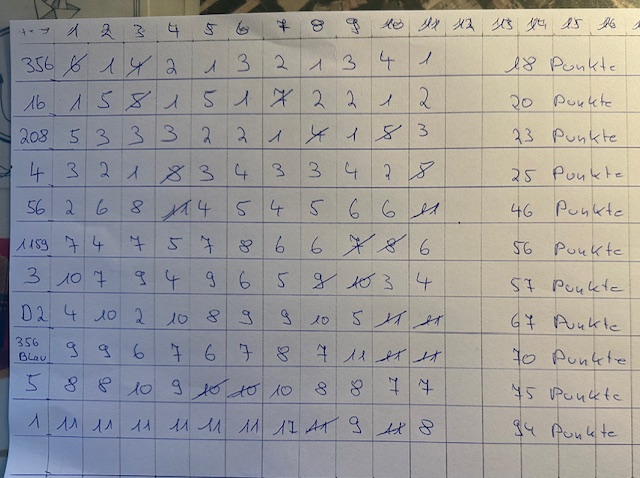 1 2 3 4 5 6 7 8 9 10 11 12 13 14 15 16
356 6 1 4 2 1 3 2 1 3 4 1 18 Punkte
16 1 5 8 1 5 1 7 2 2 1 2 20 Punkte
208 5 3 3 3 2 2 1 4 1 5 3 23 Punkte
4 3 2 1 8 3 4 3 3 4 2 8 25 Punkte
56 2 6 8 11 4 5 4 5 6 6 11 46 Punkte
1159 7 4 7 5 7 8 6 6 7 8 6 56 Punkte
3 10 7 9 4 9 6 5 9 10 3 4 57 Punkte
D2 4 10 2 10 8 9 9 10 5 11 11 67 Punkte
356 Blau 9 9 6 7 6 7 8 7 11 11 11 70 Punkte
5 8 8 10 9 10 10 10 8 8 7 7 75 Punkte
1 11 11 11 11 11 11 17 11 9 11 8 94 Punkte